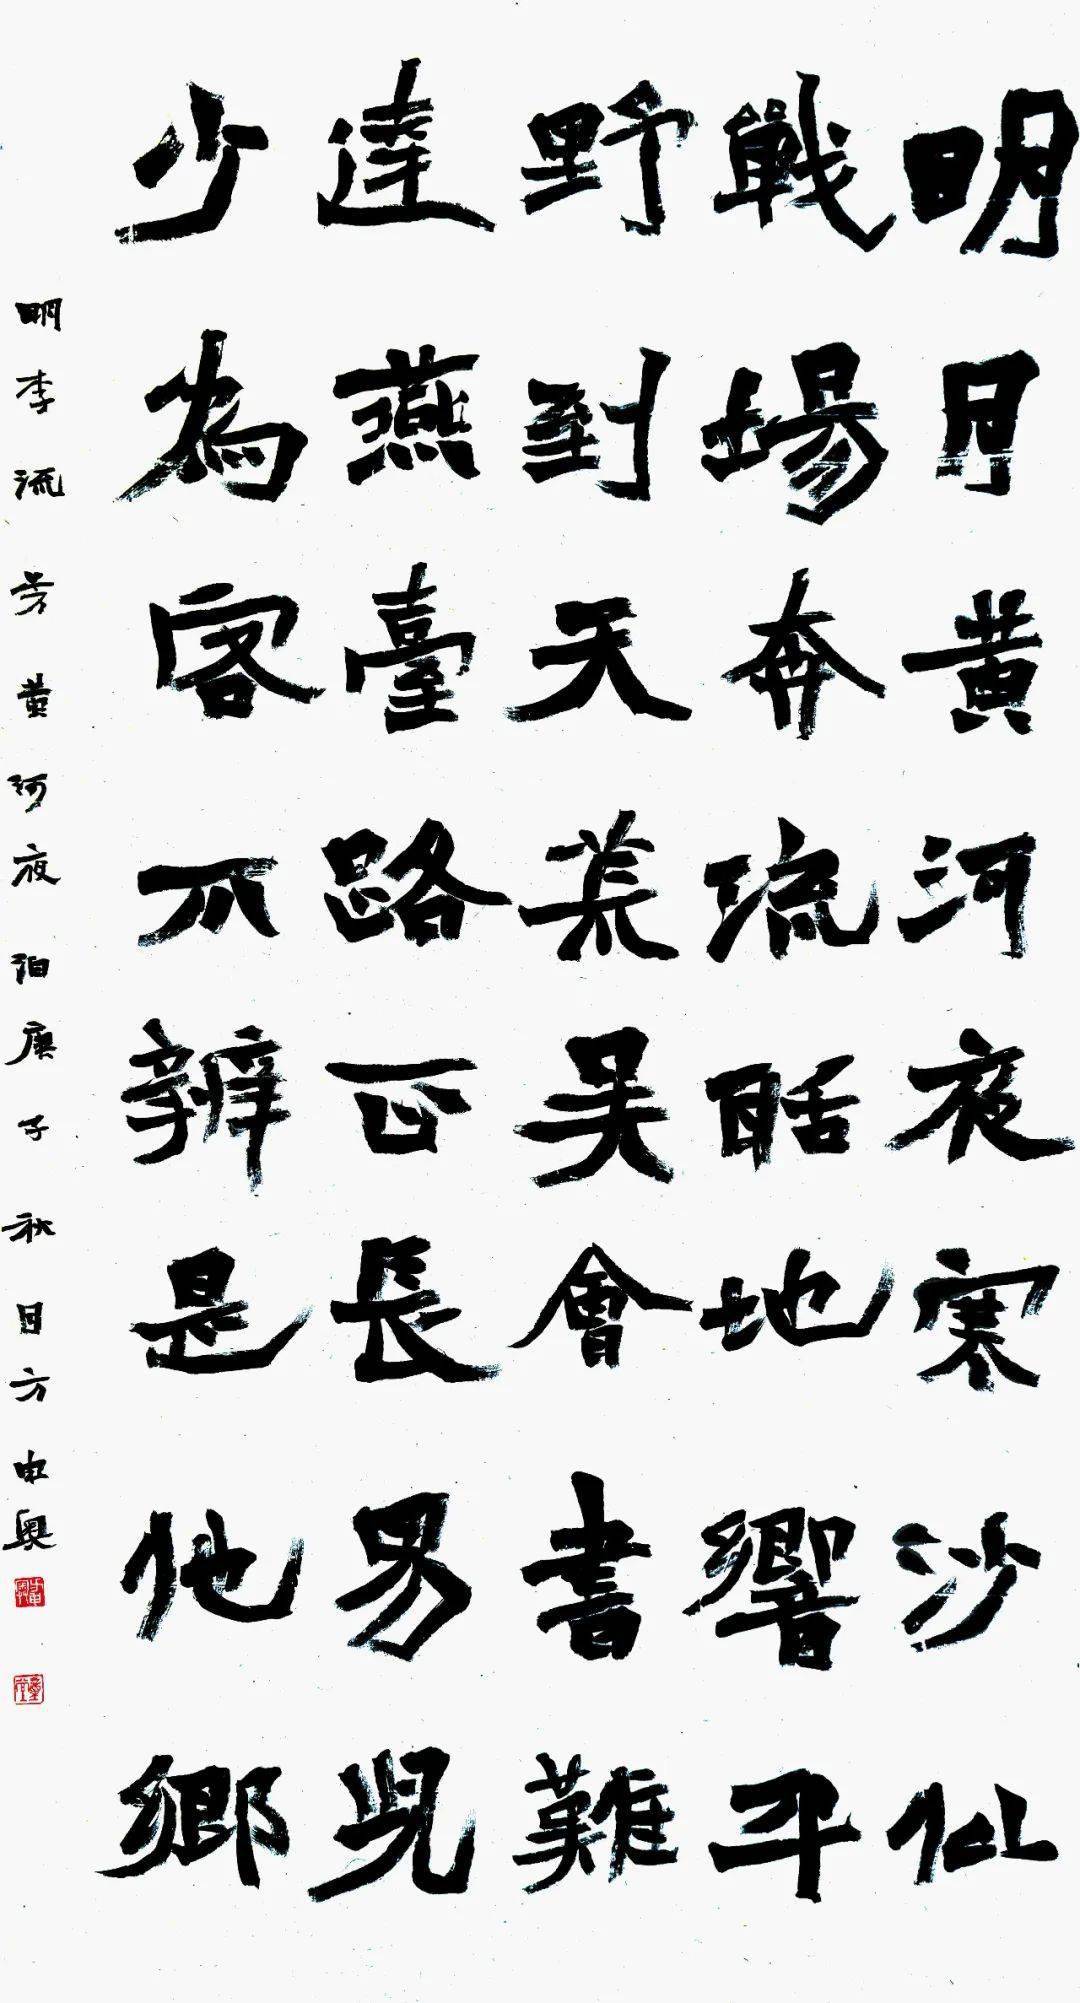 明月黄河夜寒沙似
戰場奔流聒地響平
野到天荒吴會書難
達燕臺路正長男兒
少為客不辨是他鄉
明李流芳黄河夜泊庚子秋日方申奥